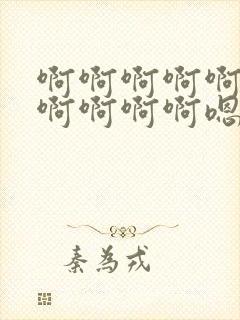 啊啊啊啊啊
啊啊啊啊嗯
秦为戎